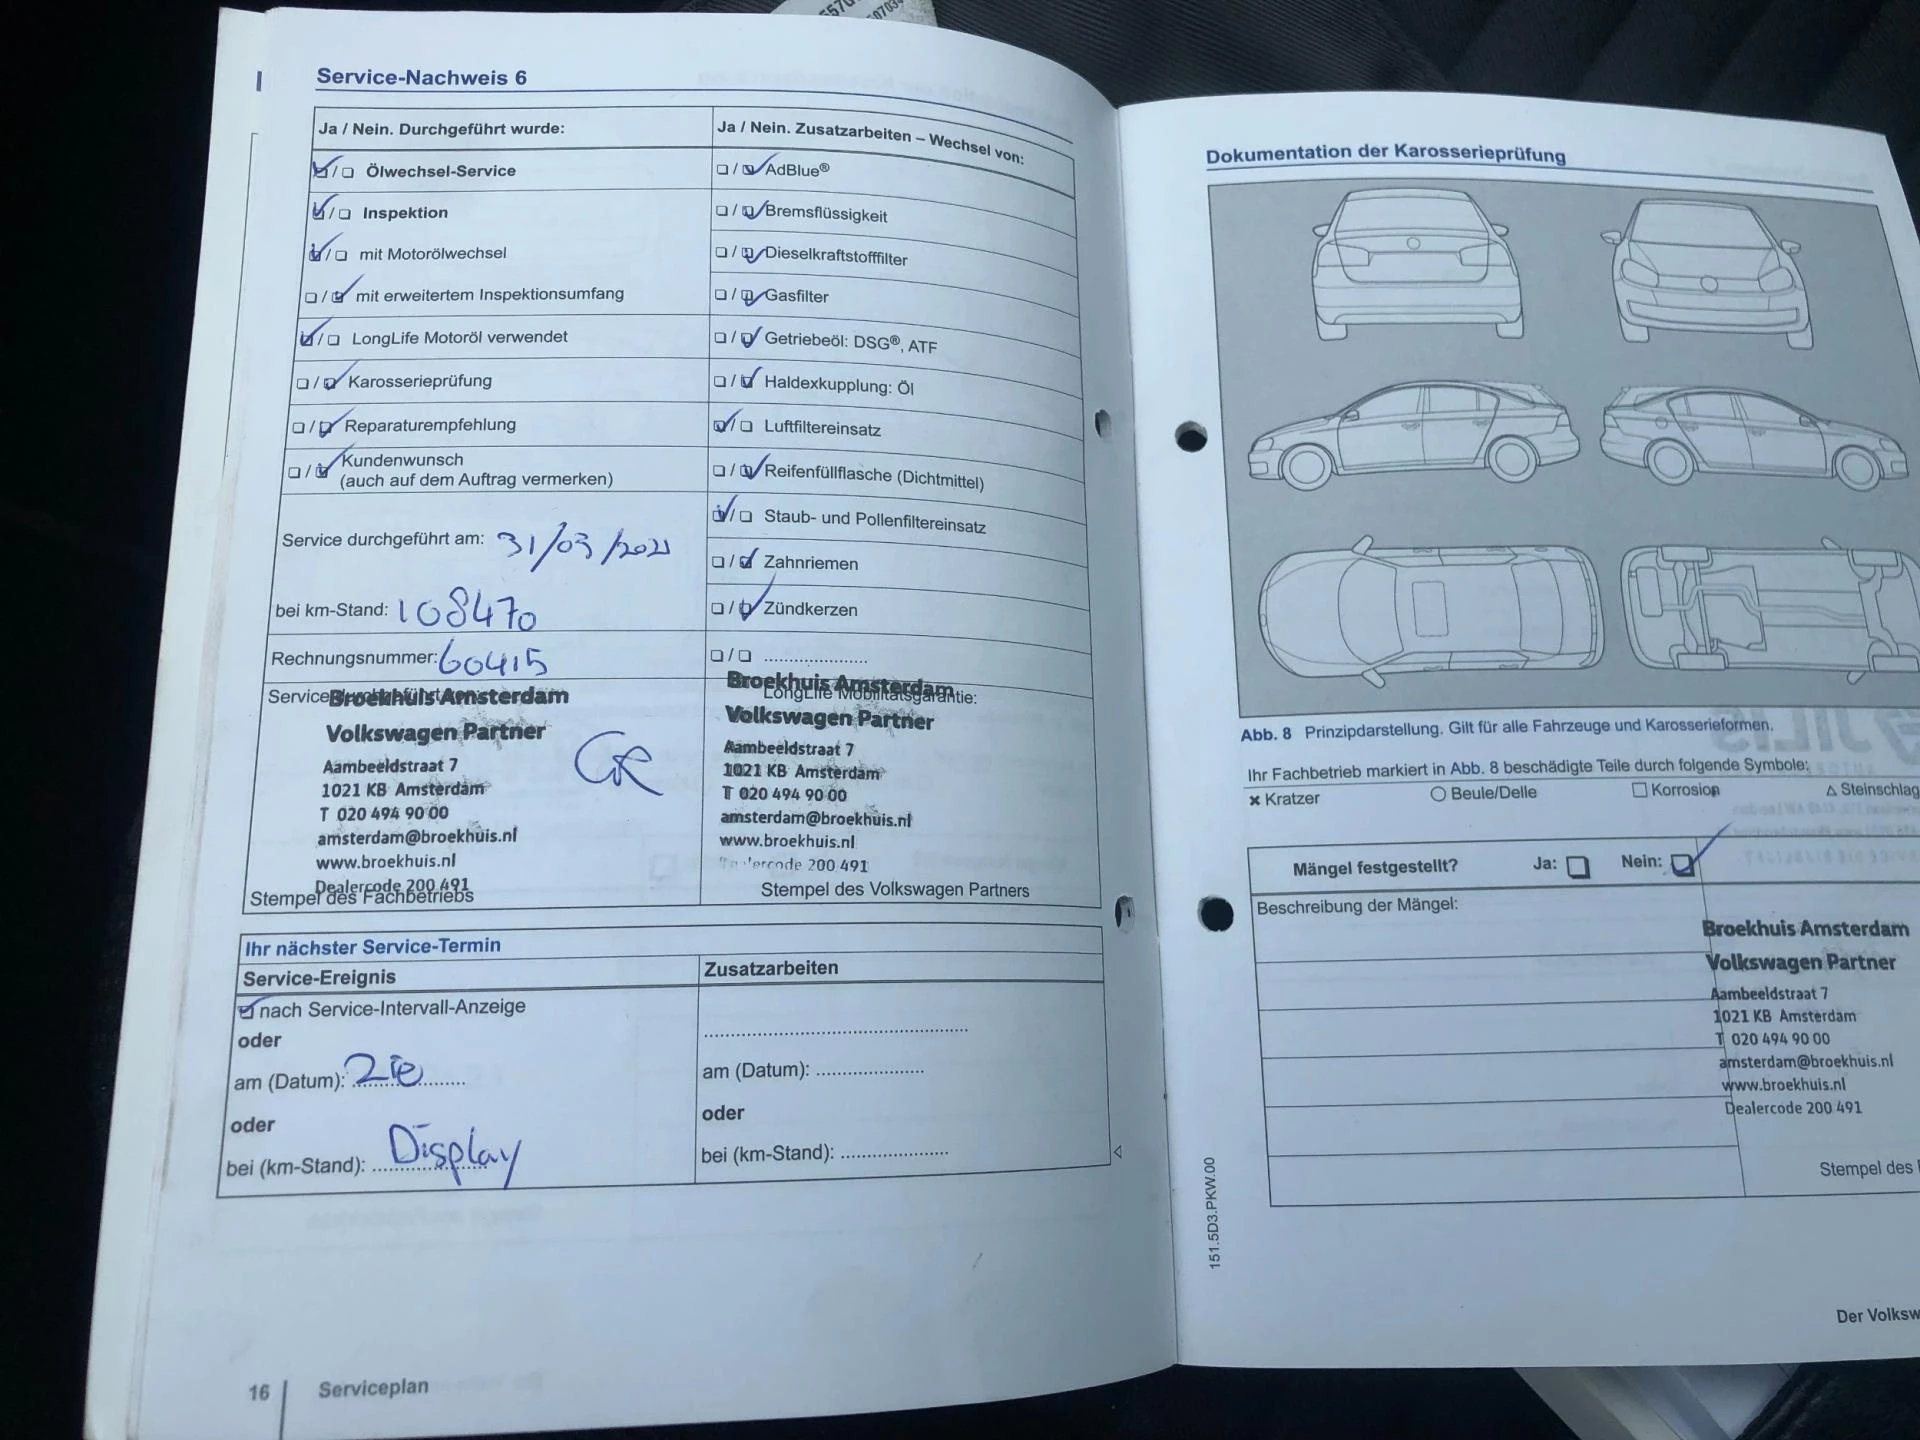 Service-Nachweis 6
Ja / Nein. Durchgeführt wurde:
☑/☐ Ölwechsel-Service
☑/☐ Inspektion
☑/☐ mit Motorölwechsel
☐/☑ mit erweitertem Inspektionsumfang
☑/☐ LongLife Motoröl verwendet
☐/☑ Karosserieprüfung
☐/☑ Reparaturempfehlung
☐/☑ Kundenwunsch
(auch auf dem Auftrag vermerken)
Service durchgeführt am: 31/03/2021
bei km-Stand: 108470
Rechnungsnummer: 60415
Broekhuis Amsterdam
Volkswagen Partner
Aambeeldstraat 7
1021 KB Amsterdam
T 020 494 90 00
amsterdam@broekhuis.nl
www.broekhuis.nl
Dealercode 200 491
Stempel des Fachbetriebs
GR
Ja / Nein. Zusatzarbeiten – Wechsel von:
☐/☑ AdBlue®
☐/☑ Bremsflüssigkeit
☐/☑ Dieselkraftstofffilter
☐/☑ Gasfilter
☐/☑ Getriebeöl: DSG®, ATF
☐/☑ Haldexkupplung: Öl
☑/☐ Luftfiltereinsatz
☐/☑ Reifenfüllflasche (Dichtmittel)
☑/☐ Staub- und Pollenfiltereinsatz
☐/☑ Zahnriemen
☐/☑ Zündkerzen
☐/☐ ......................
Broekhuis Amsterdam
LongLife Mobilitätsgarantie:
Volkswagen Partner
Aambeeldstraat 7
1021 KB Amsterdam
T 020 494 90 00
amsterdam@broekhuis.nl
www.broekhuis.nl
200 491
Stempel des Volkswagen Partners
Ihr nächster Service-Termin
Service-Ereignis
☑ nach Service-Intervall-Anzeige
oder
am (Datum): zie
oder
bei (km-Stand): Display
Zusatzarbeiten
am (Datum): ......................
oder
bei (km-Stand): ......................
16 | Serviceplan
Dokumentation der Karosserieprüfung
Abb. 8 Prinzipdarstellung. Gilt für alle Fahrzeuge und Karosserieformen.
Ihr Fachbetrieb markiert in Abb. 8 beschädigte Teile durch folgende Symbole:
× Kratzer ○ Beule/Delle □ Korrosion △ Steinschlag
Mängel festgestellt? Ja: ☐ Nein: ☑
Beschreibung der Mängel:
Broekhuis Amsterdam
Volkswagen Partner
Aambeeldstraat 7
1021 KB Amsterdam
T 020 494 90 00
amsterdam@broekhuis.nl
www.broekhuis.nl
Dealercode 200 491
Stempel des
151.5D3.PKW.00
Der Volksw